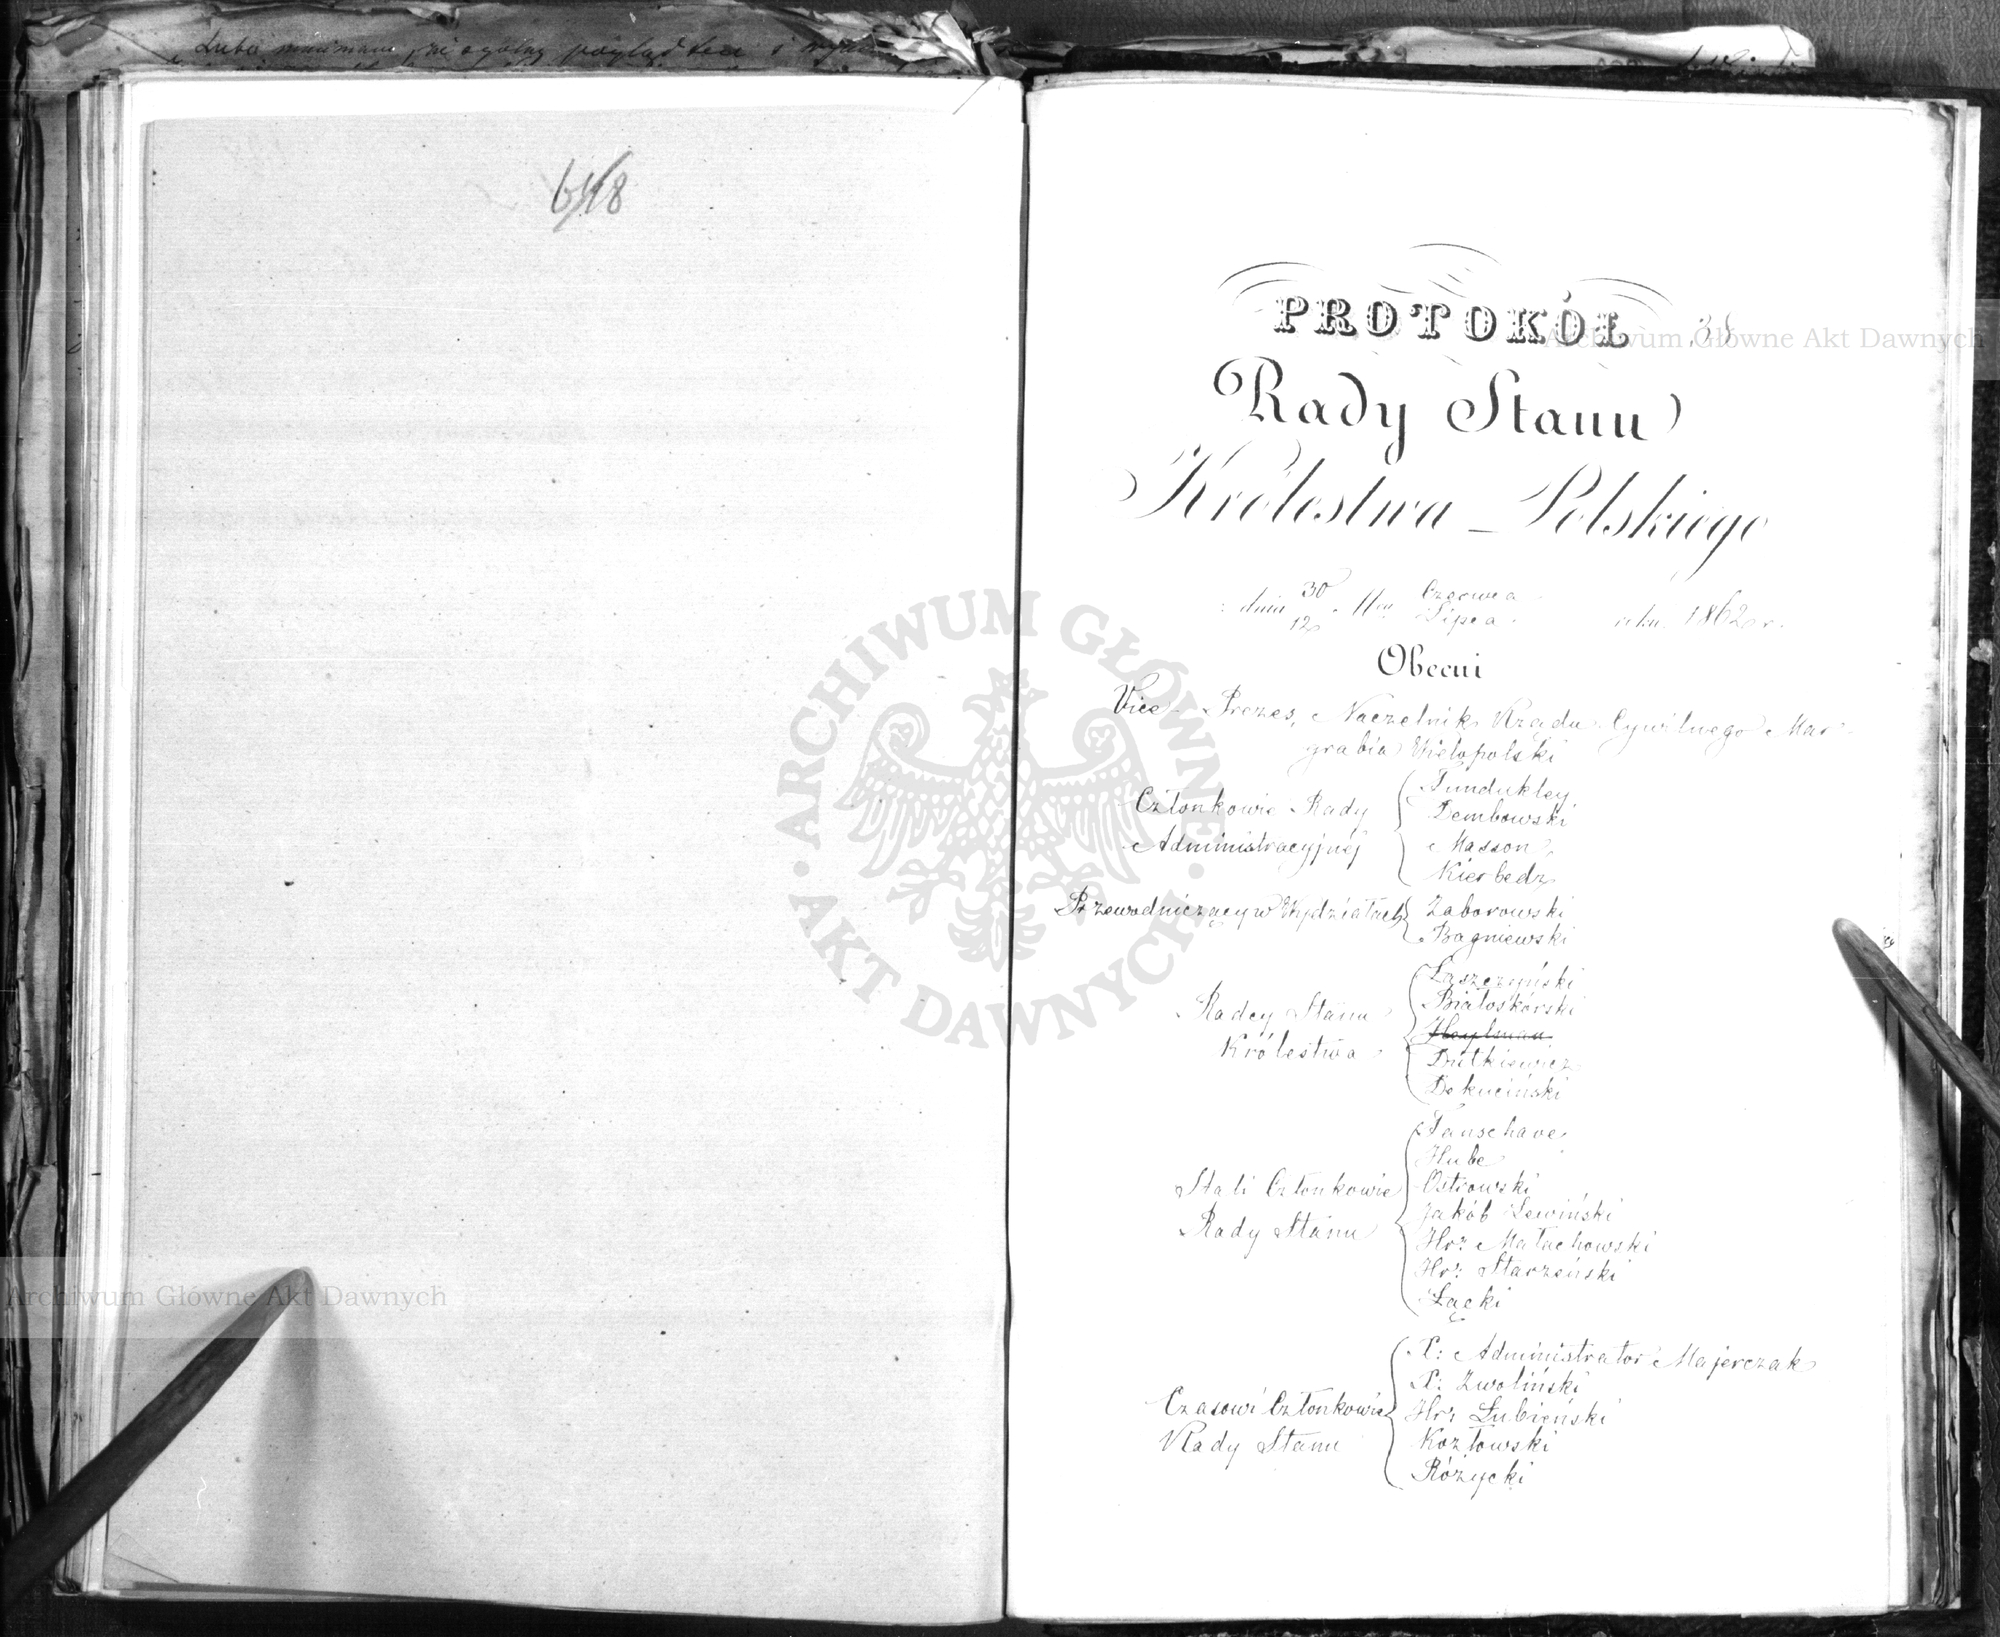 618
PROTOKÓŁ 38
Rady Stanu
Królestwa Polskiego
dnia 30/12 Mca Czerwca/Lipca roku 1862 r.
Obecni
Vice-Prezes, Naczelnik Rządu Cywilnego Mar-
grabia Wielopolski
Członkowie Rady Administracyjnéj
Fundukley
Dembowski
Masson
Kierbedz
Przewodniczący w Wydziałach
Zaborowski
Bagniewski
Radcy Stanu Królestwa
Łaszczyński
Białoskórski
Heylman
Dutkiewicz
Dekuciński
Stali Członkowie Rady Stanu
Fanschave
Hube
Ostrowski
Jakób Lewiński
Hr: Małachowski
Hr: Starzeński
Łącki
Czasowi Członkowie Rady Stanu
X: Administrator Majerczak
X: Zwoliński
Hr: Łubieński
Kozłowski
Różycki
Archiwum Główne Akt Dawnych
ARCHIWUM GŁÓWNE AKT DAWNYCH
Archiwum Główne Akt Dawnych